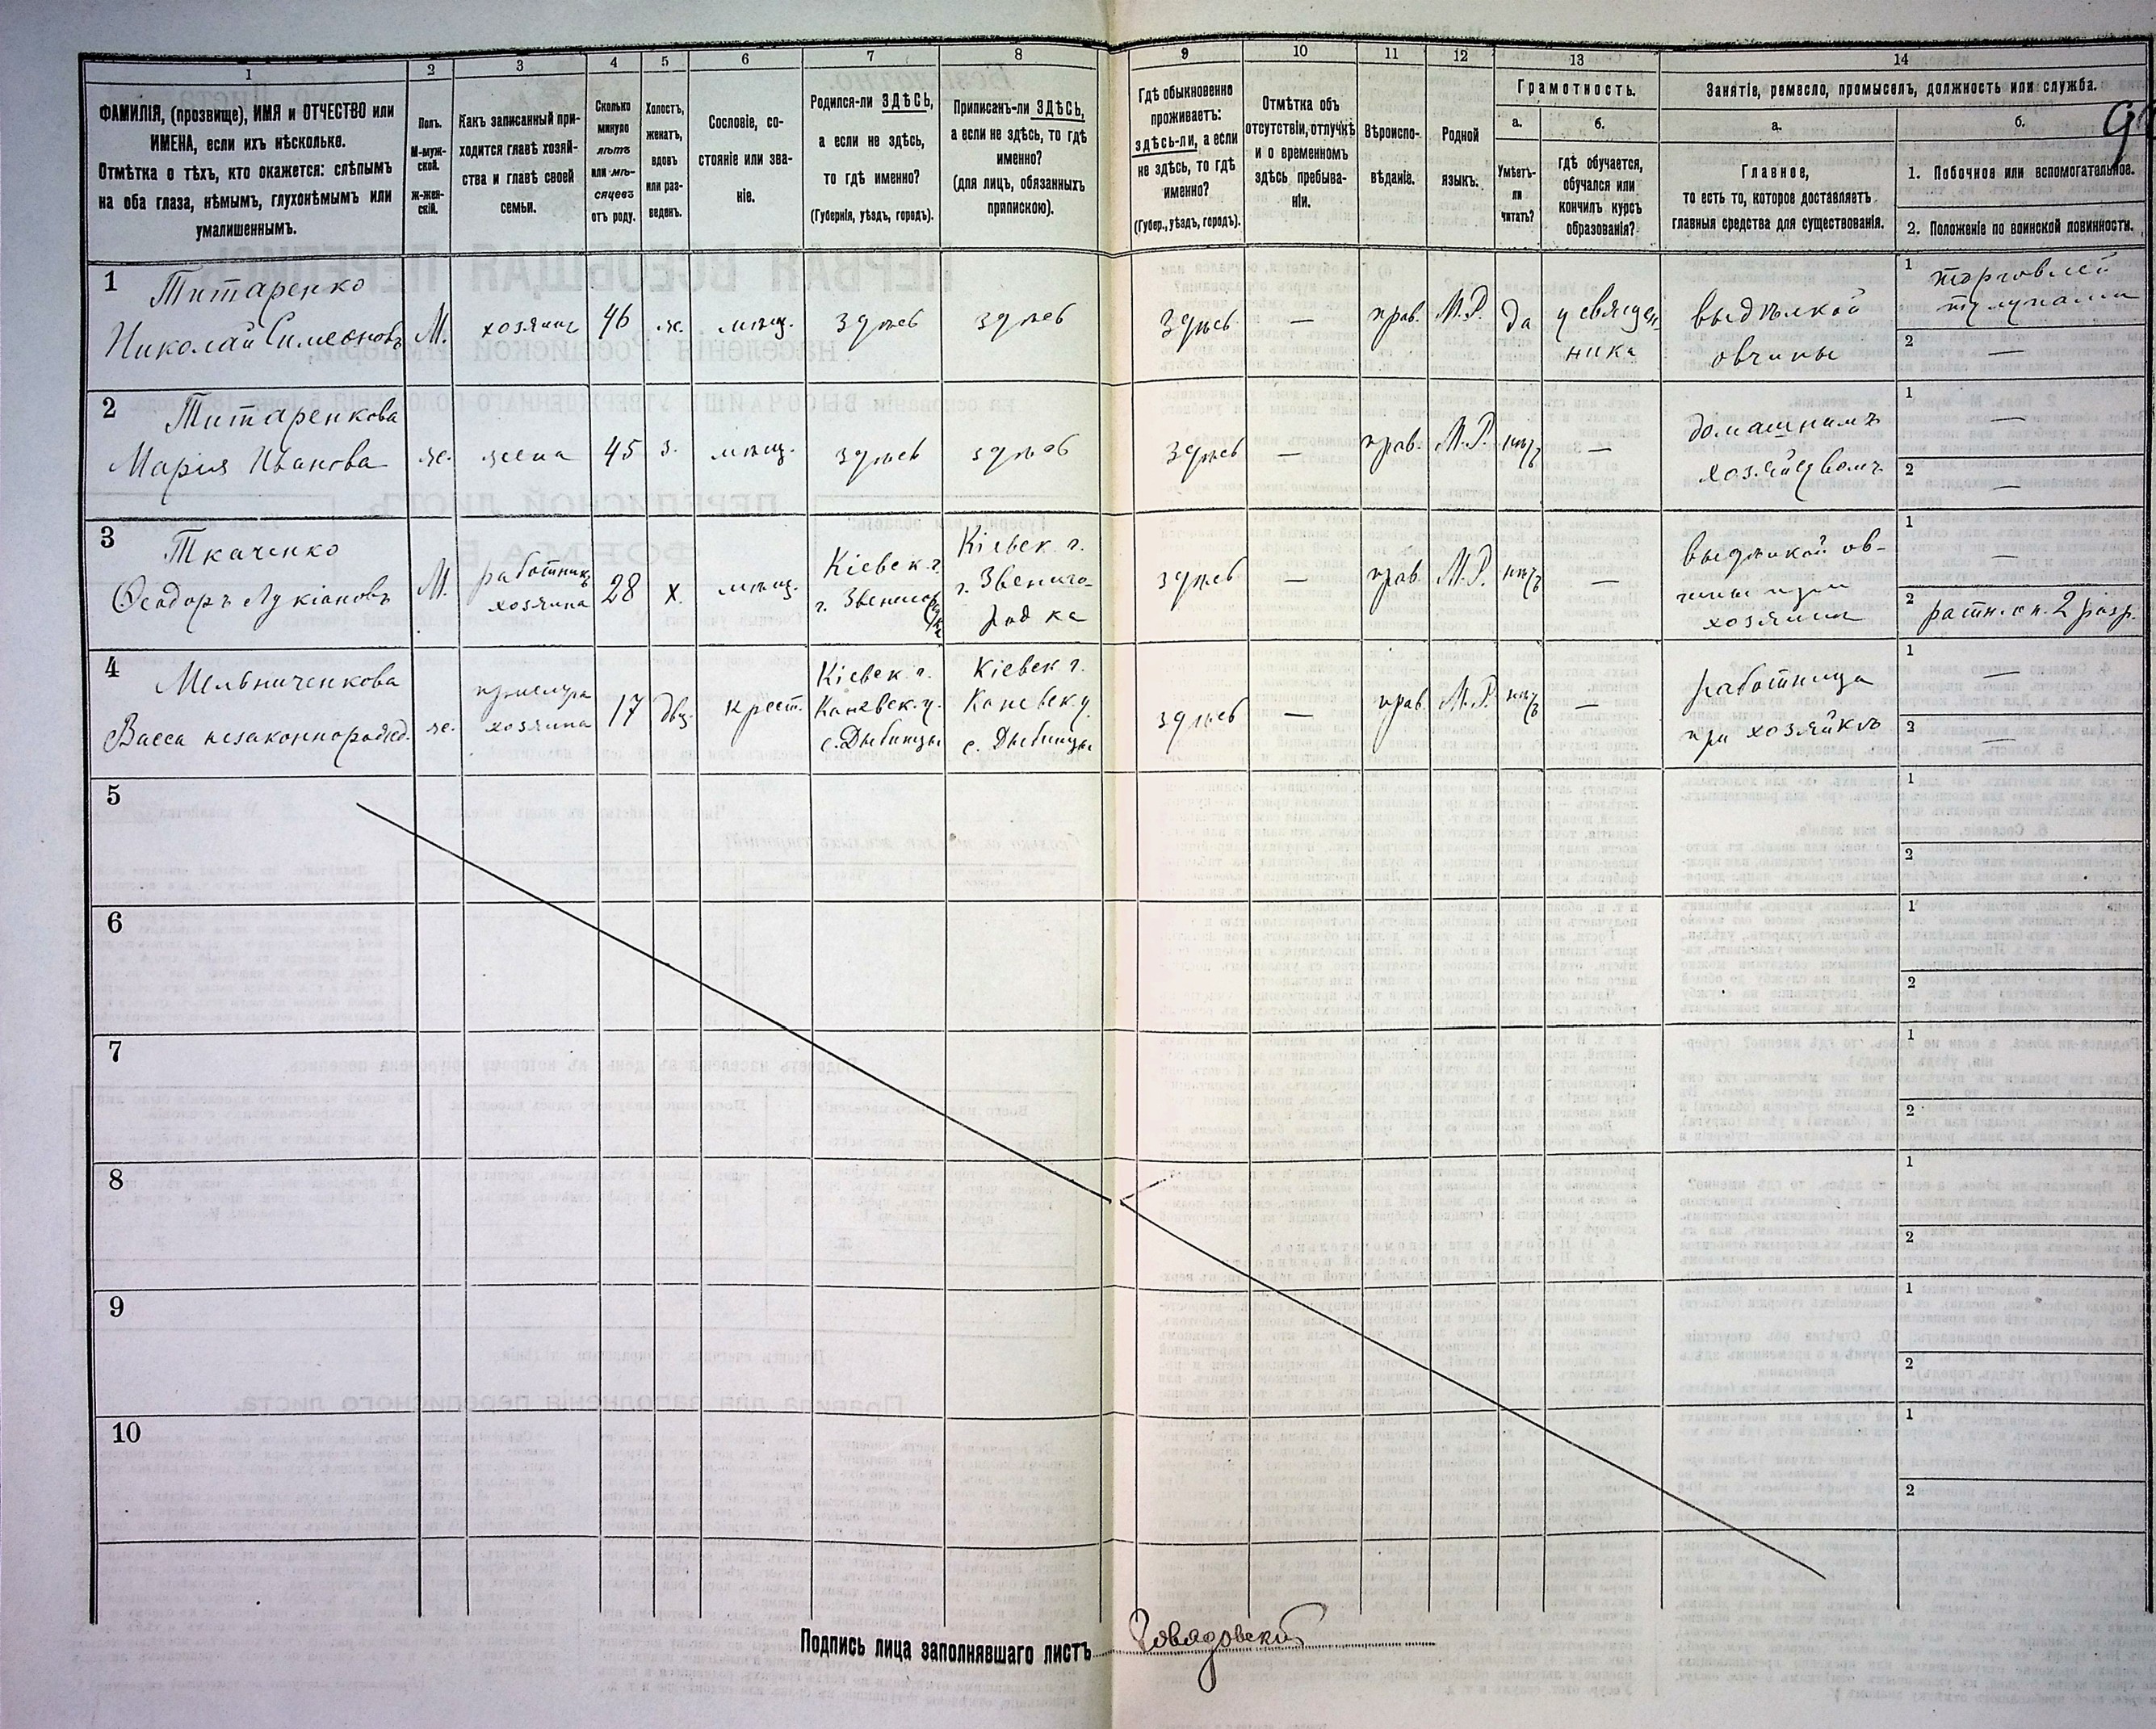 1
2
3
4
5
6
7
8
9
10
11
12
13
14
ФАМИЛІЯ, (прозвище), ИМЯ и ОТЧЕСТВО или
ИМЕНА, если ихъ нѣсколько.
Отмѣтка о тѣхъ, кто окажется: слѣпымъ
на оба глаза, нѣмымъ, глухонѣмымъ или
умалишеннымъ.
Полъ.
М-муж-
ской.
Ж-жен-
скій.
Какъ записанный при-
ходится главѣ хозяй-
ства и главѣ своей
семьи.
Сколько
минуло
лѣтъ
или мѣ-
сяцевъ
отъ роду.
Холостъ,
женатъ,
вдовъ
или раз-
веденъ.
Сословіе, со-
стояніе или зва-
ніе.
Родился-ли ЗДѢСЬ,
а если не здѣсь,
то гдѣ именно?
(Губернія, уѣздъ, городъ).
Приписанъ-ли ЗДѢСЬ,
а если не здѣсь, то гдѣ
именно?
(для лицъ, обязанныхъ
припискою).
Гдѣ обыкновенно
проживаетъ:
здѣсь-ли, а если
не здѣсь, то гдѣ
именно?
(Губер., уѣздъ, городъ).
Отмѣтка объ
отсутствіи, отлучкѣ
и о временномъ
здѣсь пребыва-
ніи.
Вѣроиспо-
вѣданіе.
Родной
языкъ.
Грамотность.
а.
б.
Умѣетъ-
ли
читать?
гдѣ обучается,
обучался или
кончилъ курсъ
образованія?
Занятіе, ремесло, промыселъ, должность или служба.
а.
б.
Главное,
то есть то, которое доставляетъ
главныя средства для существованія.
1. Побочное или вспомогательное.
2. Положеніе по воинской повинности.
1
Титаренко
Николай Симеоновъ
М.
хозяинъ
46
ж.
мѣщ.
здѣсь
здѣсь
здѣсь
—
прав.
М.Р.
да
у священ
ника
выдѣлкой
овчины
1
торговлей
тулупами
2
—
2
Титаренкова
Марія Иванова
ж.
жена
45
з.
мѣщ.
здѣсь
здѣсь
здѣсь
—
прав.
М.Р.
нѣтъ
—
домашнимъ
хозяйствомъ
1
—
2
—
3
Ткаченко
Ѳеодоръ Лукіановъ
М.
работникъ
хозяина
28
х.
мѣщ.
Кіевск. г.
г. Звенигородка
Кіевск. г.
г. Звениго-
родка
здѣсь
—
прав.
М.Р.
нѣтъ
—
выдѣлкой ов-
чины при
хозяинѣ
1
—
2
ратн. оп. 2 разр.
4
Мельниченкова
Васса незаконнорожд.
ж.
прислуга
хозяина
17
двц.
крест.
Кіевск. г.
Каневск. у.
с. Дыбинцы
Кіевск г.
Каневск. у.
с. Дыбинцы
здѣсь
—
прав.
М.Р.
нѣтъ
—
работница
при хозяйкѣ
1
—
2
—
5
1
2
6
1
2
7
1
2
8
1
2
9
1
2
10
1
2
Подпись лица заполнявшаго листъ